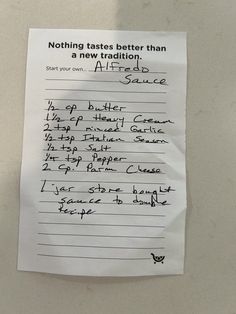 Nothing tastes better than
a new tradition.
Start your own... Alfredo
Sauce
1/2 cp butter
1 1/2 cp Heavy Cream
2 tsp minced Garlic
1/2 tsp Italian Season
1/2 tsp Salt
1/4 tsp Pepper
2 cp. Parm Cheese
1 jar store bought
sauce to double
recipe